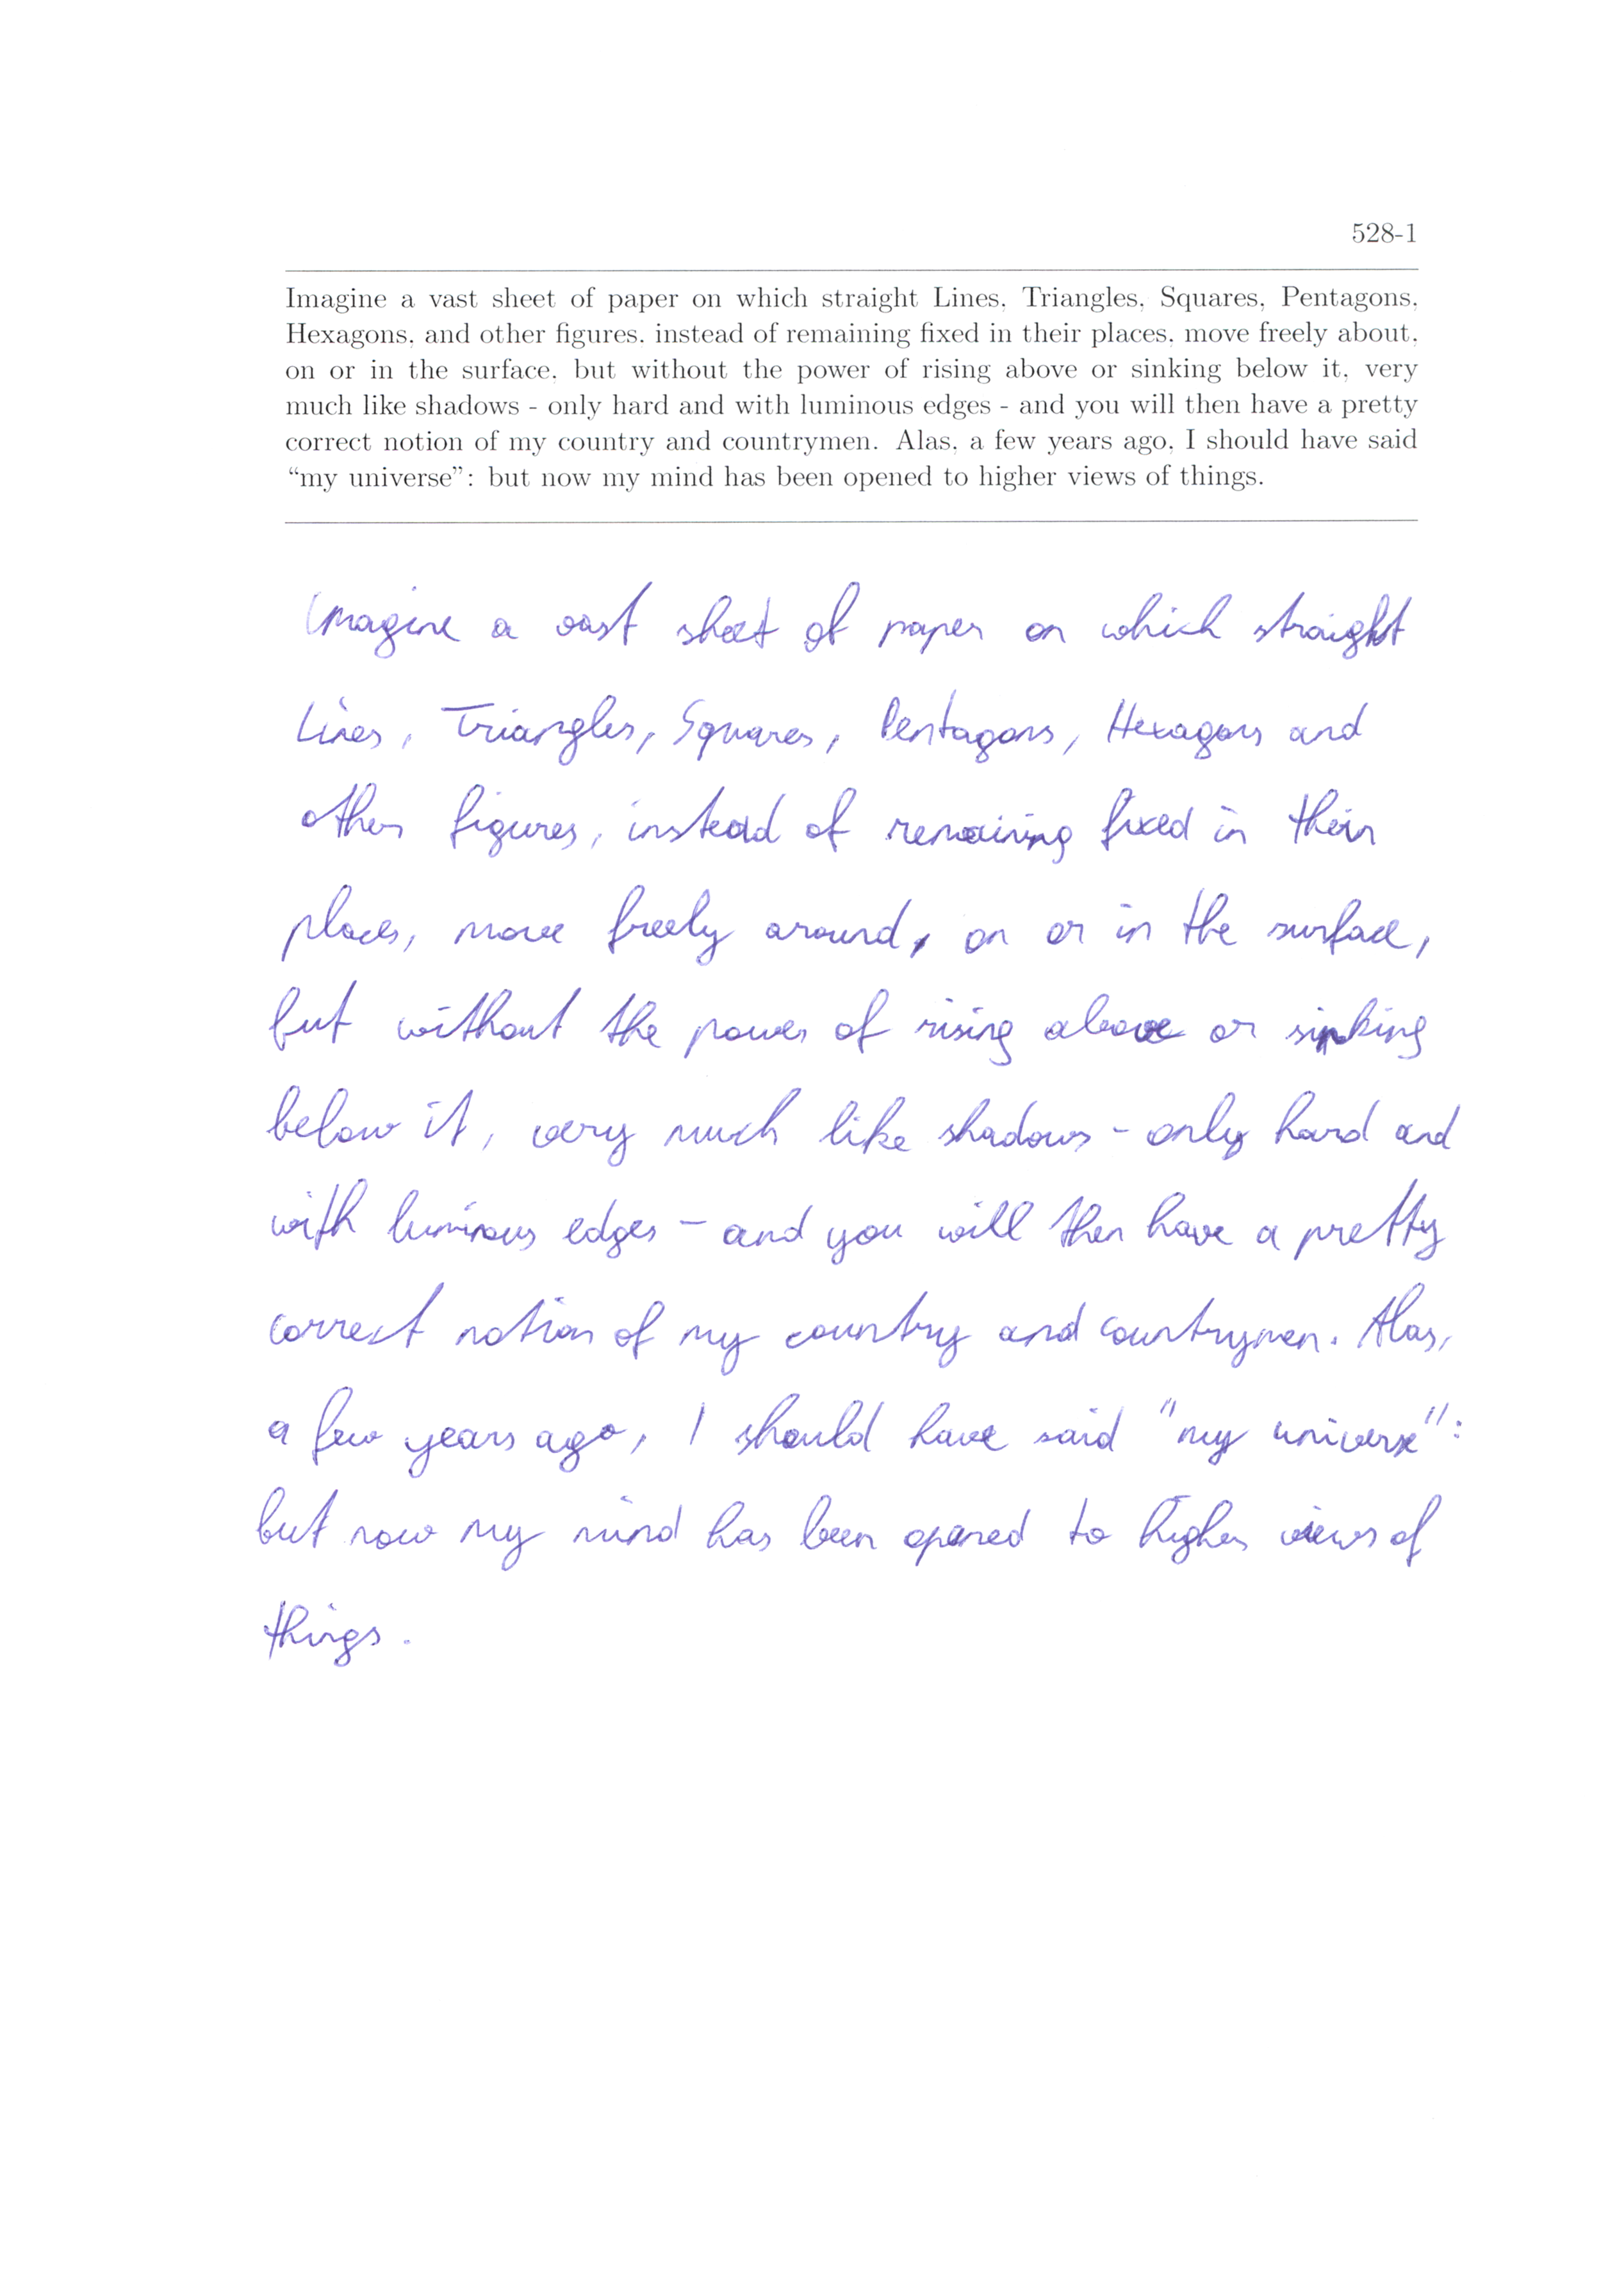 528-1
Imagine a vast sheet of paper on which straight Lines, Triangles, Squares, Pentagons,
Hexagons, and other figures, instead of remaining fixed in their places, move freely about,
on or in the surface, but without the power of rising above or sinking below it, very
much like shadows - only hard and with luminous edges - and you will then have a pretty
correct notion of my country and countrymen. Alas, a few years ago, I should have said
“my universe”: but now my mind has been opened to higher views of things.
Imagine a vast sheet of paper on which straight
Lines, Triangles, Squares, Pentagons, Hexagons and
other figures, instead of remaining fixed in their
places, move freely around, on or in the surface,
but without the power of rising above or sinking
below it, very much like shadows - only hard and
with luminous edges - and you will then have a pretty
correct notion of my country and countrymen. Alas,
a few years ago, I should have said "my universe":
but now my mind has been opened to higher views of
things.